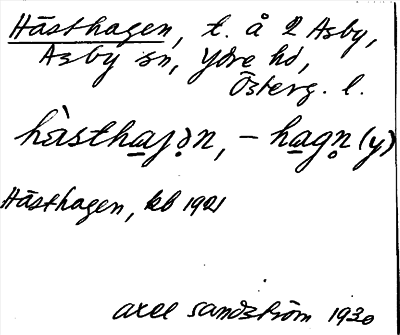 Hästhagen, t. å 2 Asby,
Asby sn, Ydre hd,
Österg. l.
hàsthaȷən, – hagn̥ (y)
Hästhagen, kb 1921
Axel Sandström 1930